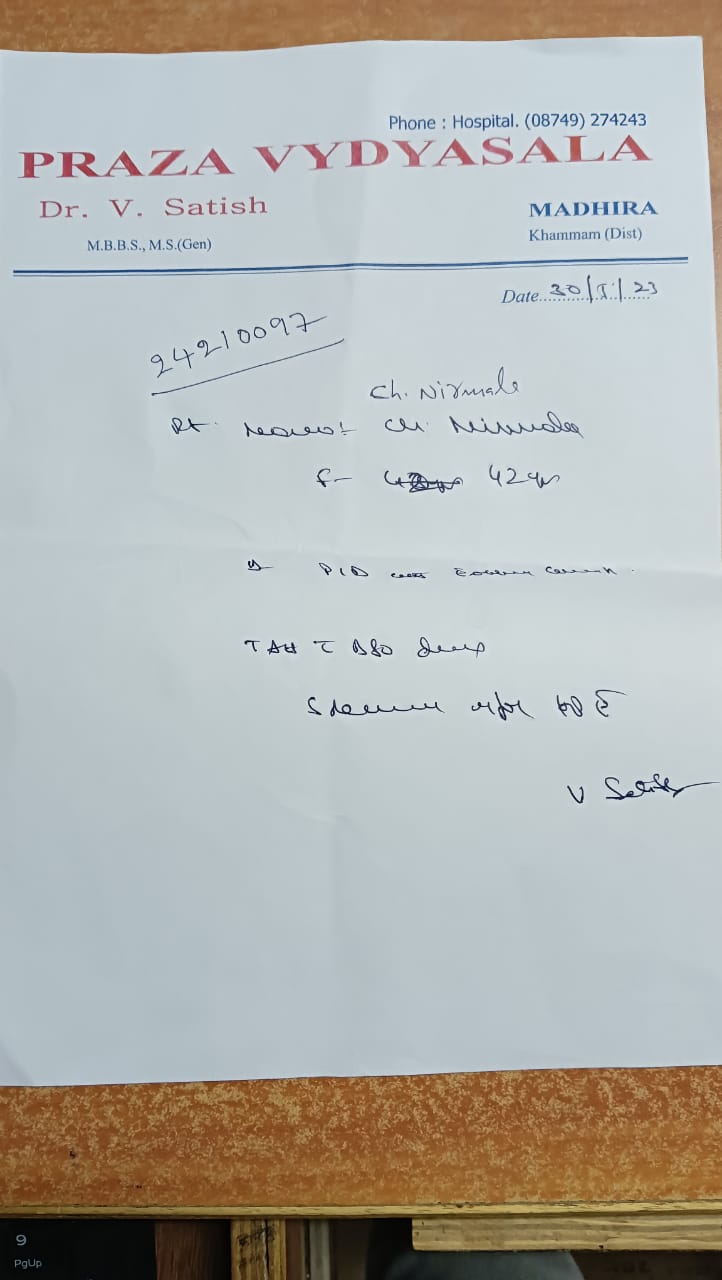 Phone : Hospital. (08749) 274243
PRAZA VYDYASALA
Dr. V. Satish
MADHIRA
M.B.B.S., M.S.(Gen)
Khammam (Dist)
Date 30/ /23
24210097
Ch. Nirmala
Pt. Ch. Nirmala
F- 42 yrs
PID
TAH c BSO
V Satish
9
PgUp